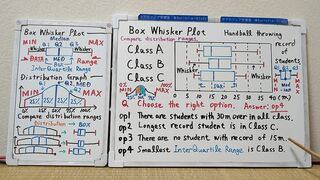 Box Whisker Plot
Median
Q1 Q2 Q3
MIN
MAX
Whisker
Whisker
DATA
MED
Range
BOX
InterQuartile Range
Distribution Graph
MIN
MED
MAX
25% 25% 25% 25%
Compare distribution ranges
Distribution → BOX
Box Whisker Plot
Handball throwing
Compare distribution ranges.
record
of
students
Class A
Class B
Class C
Whisker
Whisker
5 10 15 20 25 30 35 40 (m)
MIN
MAX
Q. Choose the right option. Answer: op4
op1 There are students with 30m over in all class.
op2 Longest record student is in Class C.
op3 There are no student with record of 15m.
op4 Smallest InterQuartile Range is Class B.